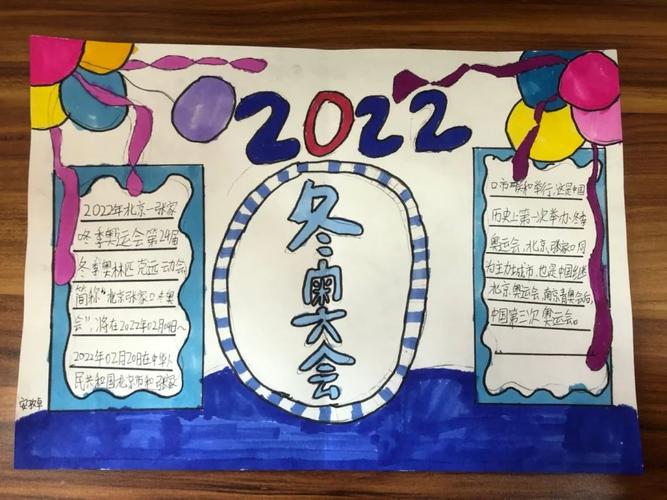 2022
冬奥大会
2022年北京-张家
冬季奥运会第24届
冬季奥林匹克运动会
简称"北京张家口冬奥
会",将在2022年02月04日~
2022年02月20日在中华人
民共和国北京市和张家
口市联和举行,这是中国
历史上第一次举办冬季
奥运会,北京、张家口月
为主力城市,也是中国继
北京奥运会,南京青奥会后,
中国第三次奥运会。